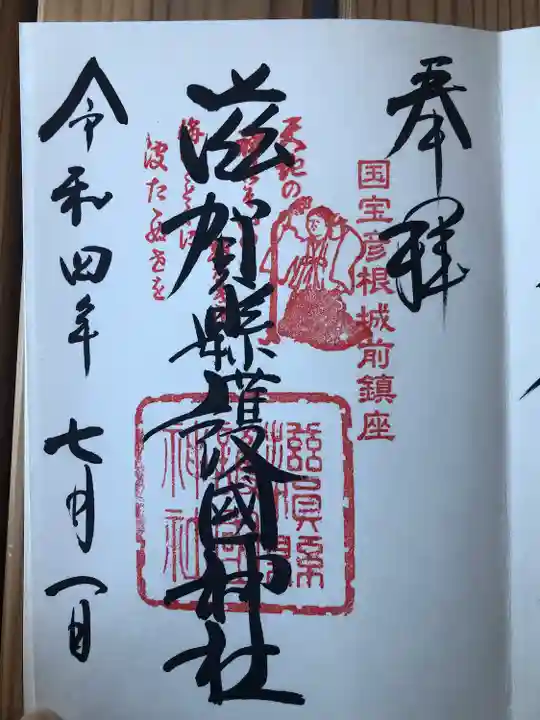 奉拝
国宝彦根城前鎮座
滋賀縣護國神社
天地の
波たゝぬ世を
滋賀縣
護國
神社
令和四年 七月一日